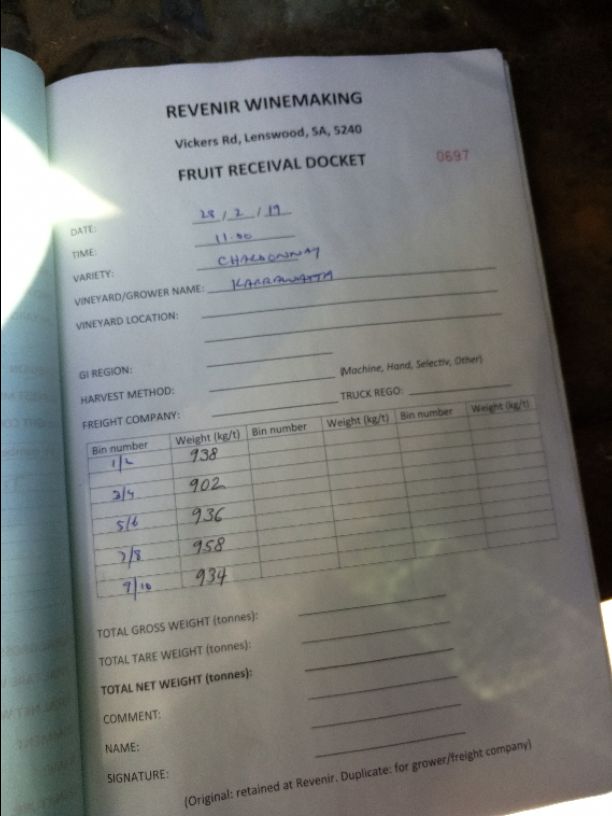 REVENIR WINEMAKING
Vickers Rd, Lenswood, SA, 5240
FRUIT RECEIVAL DOCKET 0697
DATE: 28/2/19
TIME: 11.00
VARIETY: CHARDONNAY
VINEYARD/GROWER NAME: KARRAWATTA
VINEYARD LOCATION:
GI REGION:
HARVEST METHOD: (Machine, Hand, Selectiv, Other)
FREIGHT COMPANY: TRUCK REGO:
Bin number Weight (kg/t) Bin number Weight (kg/t) Bin number Weight (kg/t)
1/2 938
3/4 902
5/6 936
7/8 958
9/10 934
TOTAL GROSS WEIGHT (tonnes):
TOTAL TARE WEIGHT (tonnes):
TOTAL NET WEIGHT (tonnes):
COMMENT:
NAME:
SIGNATURE:
(Original: retained at Revenir. Duplicate: for grower/freight company)